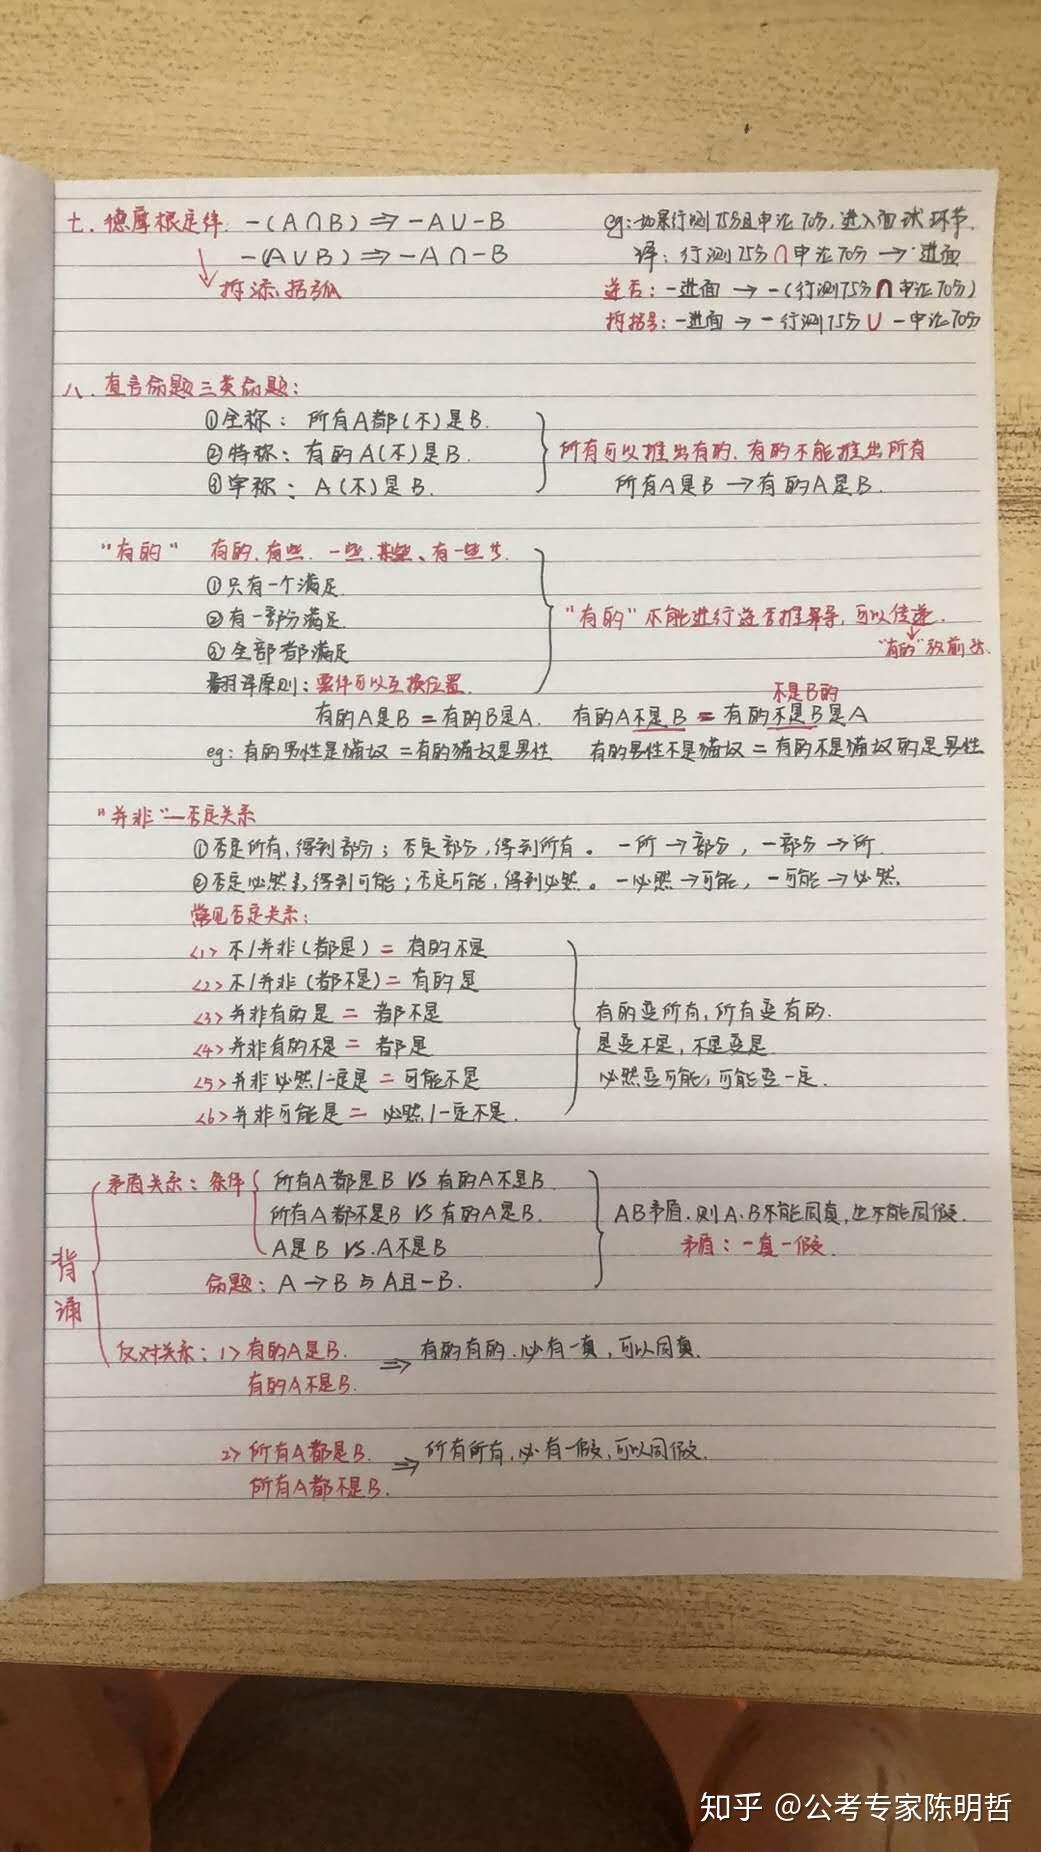 七、德摩根定律. -(A∩B) ⇒ -A∪-B
-(A∪B) ⇒ -A∩-B
拆添括弧
eg:如果行测75分且申论70分,进入面试环节.
译:行测75分∩申论70分 → 进面
逆否:-进面 → -(行测75分∩申论70分)
拆括号:-进面 → -行测75分∪-申论70分
八、直言命题三类命题:
①全称: 所有A都(不)是B.
②特称: 有的A(不)是B.
③单称: A(不)是B.
所有可以推出有的、有的不能推出所有
所有A是B → 有的A是B.
"有的" 有的、有些、一些、某些、有一些等.
①只有一个满足.
②有一部份满足.
③全部都满足
翻译原则:要件可以互换位置.
"有的"不能进行逆否推导,可以传递.
"有的"放前头.
不是B的
有的A是B = 有的B是A. 有的A不是B = 有的不是B是A
eg:有的男性是猫奴 = 有的猫奴是男性 有的男性不是猫奴 = 有的不是猫奴的是男性
"并非"—否定关系
①否定所有,得到部分;否定部分,得到所有。 -所 → 部分, -部分 → 所.
②否定必然,得到可能;否定可能,得到必然。 -必然 → 可能, -可能 → 必然.
常见否定关系:
<1> 不/并非(都是) = 有的不是
<2> 不/并非(都不是) = 有的是
<3> 并非有的是 = 都不是
<4> 并非有的不是 = 都是
<5> 并非必然/一定是 = 可能不是
<6> 并非可能是 = 必然/一定不是.
有的变所有,所有变有的.
是变不是,不是变是
必然变可能,可能变一定.
背诵
矛盾关系:条件 所有A都是B VS 有的A不是B
所有A都不是B VS 有的A是B.
A是B VS.A不是B
命题: A → B 与 A且-B.
AB矛盾.则A.B不能同真,也不能同假.
矛盾:一真一假.
反对关系:1> 有的A是B.
有的A不是B.
⇒ 有的有的.必有一真,可以同真.
2> 所有A都是B.
所有A都不是B.
⇒ 所有所有,必有一假,可以同假.
知乎 @公考专家陈明哲